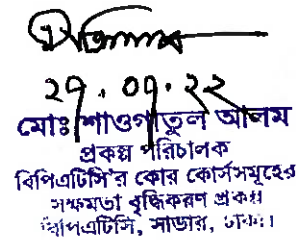 ২৭.০৭.২২
মোঃ শাওগাতুল আলম
প্রকল্প পরিচালক
বিপিএটিসি'র কোর কোর্সসমূহের
সক্ষমতা বৃদ্ধিকরণ প্রকল্প
বিপিএটিসি, সাভার, ঢাকা।